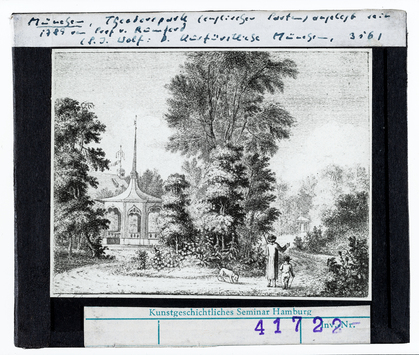 München, Theodorspark (englischer Garten) angelegt seit
1789 von Graf v. Rumford
(L.J. Wolf: D. Kurfürstliche München, 316)
Kunstgeschichtliches Seminar Hamburg
41722 Inv.-Nr.